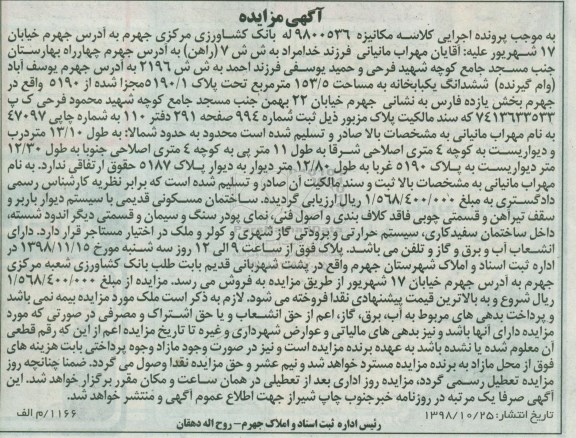 آگهی مزایده
به موجب پرونده اجرایی کلاسه مکانیزه ۹۸۰۰۵۳۶ له بانک کشاورزی مرکزی جهرم به آدرس جهرم خیابان
۱۷ شهریور علیه: آقایان مهراب مانیانی فرزند خدامراد به ش ش ۷ (راهن) به آدرس جهرم چهارراه بهارستان
جنب مسجد جامع کوچه شهید فرحی و حمید یوسفی فرزند احمد به ش ش ۲۱۹۶ به آدرس جهرم یوسف آباد
(وام گیرنده) ششدانگ یکبابخانه به مساحت ۱۵۳/۵ مترمربع تحت پلاک ۵۱۹۰/۱مجزا شده از ۵۱۹۰ واقع در
جهرم بخش یازده فارس به نشانی جهرم خیابان ۲۲ بهمن جنب مسجد جامع کوچه شهید محمود فرحی ک پ
۷۴۱۳۶۳۳۵۳۳ که سند مالکیت پلاک مزبور ذیل ثبت شماره ۹۹۴ صفحه ۲۹۱ دفتر ۱۱۰ به شماره چاپی ۴۷۰۹۷
به نام مهراب مانیانی به مشخصات بالا صادر و تسلیم شده است محدود به حدود شمالا: به طول ۱۳/۱۰ متردرب
و دیواریست به کوچه ۴ متری اصلاحی شرقا به طول ۱۱ متر پی به کوچه ۴ متری اصلاحی جنوبا به طول ۱۲/۳۰
متر دیواریست به پلاک ۵۱۹۰ غربا به طول ۱۲/۸۰ متر دیوار به دیوار پلاک ۵۱۸۷ حقوق ارتفاقی ندارد. به نام
مهراب مانیانی به مشخصات بالا ثبت و سند مالکیت آن صادر و تسلیم شده است که برابر نظریه کارشناس رسمی
دادگستری به مبلغ ۱/۵۶۸/۴۰۰/۰۰۰ ریال ارزیابی گردیده. ساختمان مسکونی قدیمی با سیستم دیوار باربر و
سقف تیرآهن و قسمتی چوبی فاقد کلاف بندی و اصول فنی، نمای پودر سنگ و سیمان و قسمتی دیگر اندود شسته،
داخل ساختمان سفیدکاری، سیستم حرارتی و برودتی گاز شهری و کولر و ملک در اختیار مستاجر قرار دارد. دارای
انشعاب آب و برق و گاز و تلفن می باشد. پلاک فوق از ساعت ۹ الی ۱۲ روز سه شنبه مورخ ۱۳۹۸/۱۱/۱۵ در
اداره ثبت اسناد و املاک شهرستان جهرم واقع در پشت شهربانی قدیم بابت طلب بانک کشاورزی شعبه مرکزی
جهرم به آدرس جهرم خیابان ۱۷ شهریور از طریق مزایده به فروش می رسد. مزایده از مبلغ ۱/۵۶۸/۴۰۰/۰۰۰
ریال شروع و به بالاترین قیمت پیشنهادی نقدا فروخته می شود. لازم به ذکر است ملک مورد مزایده بیمه نمی باشد
و پرداخت بدهی های مربوط به آب، برق، گاز، اعم از حق انشعاب و یا حق اشتراک و مصرفی در صورتی که مورد
مزایده دارای آنها باشد و نیز بدهی های مالیاتی و عوارض شهرداری و غیره تا تاریخ مزایده اعم از این که رقم قطعی
آن معلوم شده یا نشده باشد به عهده برنده مزایده است و نیز در صورت وجود مازاد وجوه پرداختی بابت هزینه های
فوق از محل مازاد به برنده مزایده مسترد خواهد شد و نیم عشر و حق مزایده نقدا وصول می گردد. ضمنا چنانچه روز
مزایده تعطیل رسمی گردد، مزایده روز اداری بعد از تعطیلی در همان ساعت و مکان مقرر برگزار خواهد شد. این
آگهی صرفا یک مرتبه در روزنامه خبرجنوب چاپ شیراز جهت اطلاع عموم آگهی و منتشر خواهد شد.
تاریخ انتشار: ۱۳۹۸/۱۰/۲۵
۱۱۶۶/م الف
رئیس اداره ثبت اسناد و املاک جهرم- روح اله دهقان